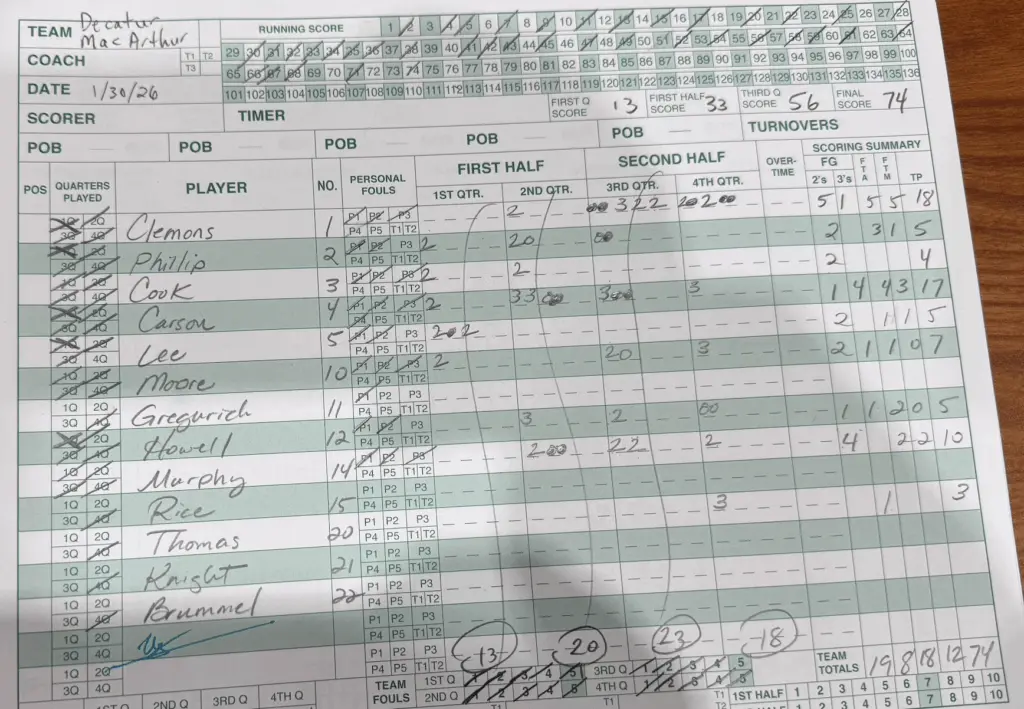 TEAM Decatur MacArthur
COACH T1 T2 T3
DATE 1/30/26
SCORER
TIMER
RUNNING SCORE 1 2 3 4 5 6 7 8 9 10 11 12 13 14 15 16 17 18 19 20 21 22 23 24 25 26 27 28
29 30 31 32 33 34 35 36 37 38 39 40 41 42 43 44 45 46 47 48 49 50 51 52 53 54 55 56 57 58 59 60 61 62 63 64
65 66 67 68 69 70 71 72 73 74 75 76 77 78 79 80 81 82 83 84 85 86 87 88 89 90 91 92 93 94 95 96 97 98 99 100
101 102 103 104 105 106 107 108 109 110 111 112 113 114 115 116 117 118 119 120 121 122 123 124 125 126 127 128 129 130 131 132 133 134 135 136
FIRST Q SCORE 13 FIRST HALF SCORE 33 THIRD Q SCORE 56 FINAL SCORE 74
POB POB POB POB POB TURNOVERS
POS QUARTERS PLAYED PLAYER NO. PERSONAL FOULS FIRST HALF SECOND HALF OVER-TIME SCORING SUMMARY
1ST QTR. 2ND QTR. 3RD QTR. 4TH QTR. FG 2's 3's FTA FTM TP
1Q 2Q 3Q 4Q Clemons 1 P1 P2 P3 P4 P5 T1 T2 2 322 2 5 1 5 5 18
1Q 2Q 3Q 4Q Phillip 2 P1 P2 P3 P4 P5 T1 T2 2 20 2 3 1 5
1Q 2Q 3Q 4Q Cook 3 P1 P2 P3 P4 P5 T1 T2 2 2 2 4
1Q 2Q 3Q 4Q Carson 4 P1 P2 P3 P4 P5 T1 T2 2 33 3 3 1 4 4 3 17
1Q 2Q 3Q 4Q Lee 5 P1 P2 P3 P4 P5 T1 T2 202 2 1 1 5
1Q 2Q 3Q 4Q Moore 10 P1 P2 P3 P4 P5 T1 T2 2 20 3 2 1 1 0 7
1Q 2Q 3Q 4Q Gregurich 11 P1 P2 P3 P4 P5 T1 T2
1Q 2Q 3Q 4Q Howell 12 P1 P2 P3 P4 P5 T1 T2 3 2 00 1 1 2 0 5
1Q 2Q 3Q 4Q Murphy 14 P1 P2 P3 P4 P5 T1 T2 200 22 2 4 2 2 10
1Q 2Q 3Q 4Q Rice 15 P1 P2 P3 P4 P5 T1 T2 3 1 3
1Q 2Q 3Q 4Q Thomas 20 P1 P2 P3 P4 P5 T1 T2
1Q 2Q 3Q 4Q Knight 21 P1 P2 P3 P4 P5 T1 T2
1Q 2Q 3Q 4Q Brummel 22 P1 P2 P3 P4 P5 T1 T2
1Q 2Q 3Q 4Q P1 P2 P3 P4 P5 T1 T2
1Q 2Q 3Q 4Q P1 P2 P3 P4 P5 T1 T2 13 20 23 18 TEAM TOTALS 19 8 18 12 74
TEAM FOULS 1ST Q 1 2 3 4 5 3RD Q 1 2 3 4 5
2ND Q 1 2 3 4 5 4TH Q 1 2 3 4 5
T1 1ST HALF 1 2 3 4 5 6 7 8 9 10
T2 2ND HALF 1 2 3 4 5 6 7 8 9 10
1ST Q 2ND Q 3RD Q 4TH Q T1 T1